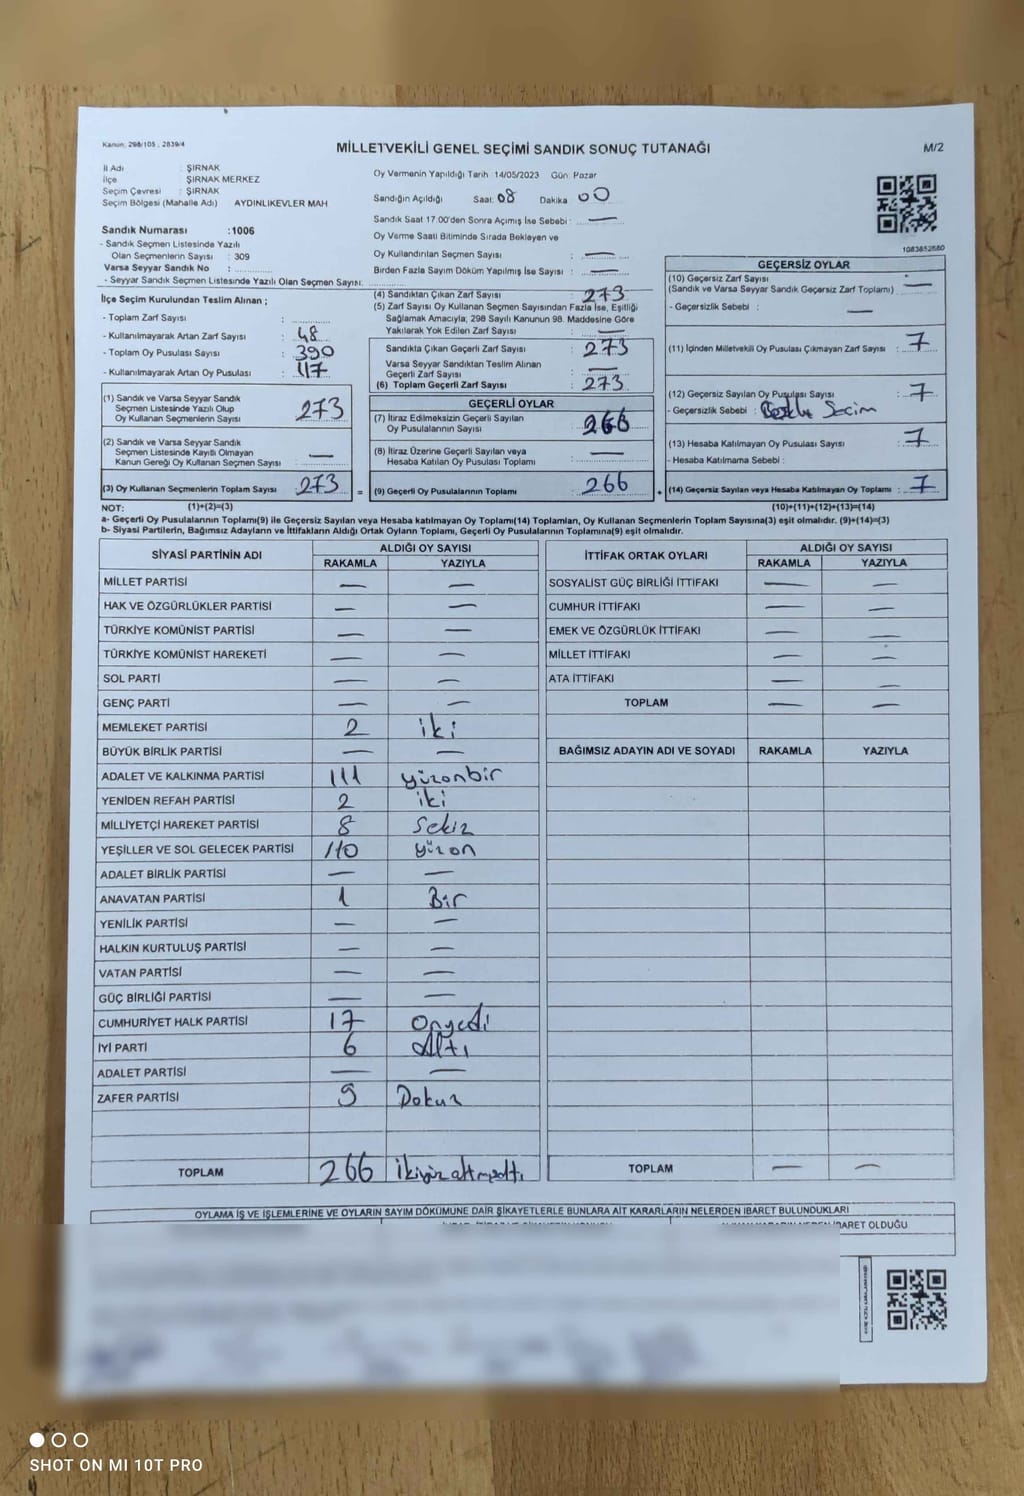 Kanun: 298/105 , 2839/4
MİLLETVEKİLİ GENEL SEÇİMİ SANDIK SONUÇ TUTANAĞI
M/2
İl Adı : ŞIRNAK
İlçe : ŞIRNAK MERKEZ
Seçim Çevresi : ŞIRNAK
Seçim Bölgesi (Mahalle Adı) AYDINLIKEVLER MAH
Sandık Numarası :1006
- Sandık Seçmen Listesinde Yazılı
Olan Seçmenlerin Sayısı : 309
Varsa Seyyar Sandık No :
- Seyyar Sandık Seçmen Listesinde Yazılı Olan Seçmen Sayısı:
Oy Vermenin Yapıldığı Tarih :14/05/2023 Gün: Pazar
Sandığın Açıldığı Saat: 08 Dakika 00
Sandık Saat 17.00'den Sonra Açımış İse Sebebi : —
Oy Verme Saati Bitiminde Sırada Bekleyen ve
Oy Kullandırılan Seçmen Sayısı : —
Birden Fazla Sayım Döküm Yapılmış İse Sayısı : —
1083852880
İlçe Seçim Kurulundan Teslim Alınan ;
- Toplam Zarf Sayısı :
- Kullanılmayarak Artan Zarf Sayısı : 48
- Toplam Oy Pusulası Sayısı : 390
- Kullanılmayarak Artan Oy Pusulası : 117
(1) Sandık ve Varsa Seyyar Sandık
Seçmen Listesinde Yazılı Olup
Oy Kullanan Seçmenlerin Sayısı : 273
(2) Sandık ve Varsa Seyyar Sandık
Seçmen Listesinde Kayıtlı Olmayan
Kanun Gereği Oy Kullanan Seçmen Sayısı —
(3) Oy Kullanan Seçmenlerin Toplam Sayısı : 273 =
(4) Sandıktan Çıkan Zarf Sayısı : 273
(5) Zarf Sayısı Oy Kullanan Seçmen Sayısından Fazla İse, Eşitliği
Sağlamak Amacıyla, 298 Sayılı Kanunun 98. Maddesine Göre
Yakılarak Yok Edilen Zarf Sayısı : —
Sandıkta Çıkan Geçerli Zarf Sayısı : 273
Varsa Seyyar Sandıktan Teslim Alınan
Geçerli Zarf Sayısı : —
(6) Toplam Geçerli Zarf Sayısı : 273
GEÇERLİ OYLAR
(7) İtiraz Edilmeksizin Geçerli Sayılan
Oy Pusulalarının Sayısı : 266
(8) İtiraz Üzerine Geçerli Sayılan veya
Hesaba Katılan Oy Pusulası Toplamı : —
(9) Geçerli Oy Pusulalarının Toplamı : 266 +
GEÇERSİZ OYLAR
(10) Geçersiz Zarf Sayısı :
(Sandık ve Varsa Seyyar Sandık Geçersiz Zarf Toplamı) —
- Geçersizlik Sebebi : —
(11) İçinden Milletvekili Oy Pusulası Çıkmayan Zarf Sayısı : 7
(12) Geçersiz Sayılan Oy Pusulası Sayısı : 7
- Geçersizlik Sebebi : Seçim
(13) Hesaba Katılmayan Oy Pusulası Sayısı : 7
- Hesaba Katılmama Sebebi :
(14) Geçersiz Sayılan veya Hesaba Katılmayan Oy Toplamı : 7
NOT: (1)+(2)=(3) (10)+(11)+(12)+(13)=(14)
a- Geçerli Oy Pusulalarının Toplamı(9) ile Geçersiz Sayılan veya Hesaba katılmayan Oy Toplamı(14) Toplamları, Oy Kullanan Seçmenlerin Toplam Sayısına(3) eşit olmalıdır. (9)+(14)=(3)
b- Siyasi Partilerin, Bağımsız Adayların ve İttifakların Aldığı Ortak Oyların Toplamı, Geçerli Oy Pusulalarının Toplamına(9) eşit olmalıdır.
SİYASİ PARTİNİN ADI ALDIĞI OY SAYISI
RAKAMLA YAZIYLA
MİLLET PARTİSİ — —
HAK VE ÖZGÜRLÜKLER PARTİSİ — —
TÜRKİYE KOMÜNİST PARTİSİ — —
TÜRKİYE KOMÜNİST HAREKETİ — —
SOL PARTİ — —
GENÇ PARTİ — —
MEMLEKET PARTİSİ 2 iki
BÜYÜK BİRLİK PARTİSİ — —
ADALET VE KALKINMA PARTİSİ 111 yüzonbir
YENİDEN REFAH PARTİSİ 2 iki
MİLLİYETÇİ HAREKET PARTİSİ 8 Sekiz
YEŞİLLER VE SOL GELECEK PARTİSİ 110 yüzon
ADALET BİRLİK PARTİSİ — —
ANAVATAN PARTİSİ 1 Bir
YENİLİK PARTİSİ — —
HALKIN KURTULUŞ PARTİSİ — —
VATAN PARTİSİ — —
GÜÇ BİRLİĞİ PARTİSİ — —
CUMHURİYET HALK PARTİSİ 17 Onyedi
İYİ PARTİ 6 Altı
ADALET PARTİSİ — —
ZAFER PARTİSİ 9 Dokuz
TOPLAM 266 ikiyüzaltmışaltı
İTTİFAK ORTAK OYLARI ALDIĞI OY SAYISI
RAKAMLA YAZIYLA
SOSYALİST GÜÇ BİRLİĞİ İTTİFAKI — —
CUMHUR İTTİFAKI — —
EMEK VE ÖZGÜRLÜK İTTİFAKI — —
MİLLET İTTİFAKI — —
ATA İTTİFAKI — —
TOPLAM — —
BAĞIMSIZ ADAYIN ADI VE SOYADI RAKAMLA YAZIYLA
TOPLAM — —
OYLAMA İŞ VE İŞLEMLERİNE VE OYLARIN SAYIM DÖKÜMÜNE DAİR ŞİKAYETLERLE BUNLARA AİT KARARLARIN NELERDEN İBARET BULUNDUKLARI
İBARET OLDUĞU
SHOT ON MI 10T PRO